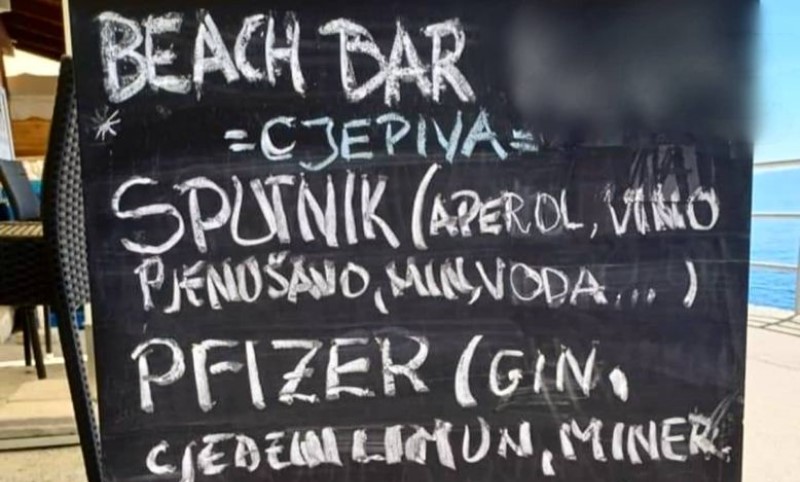 BEACH BAR
* =CJEPIVA=
SPUTNIK (APEROL, VINO
PJENUŠAVO, MIN, VODA... )
PFIZER (GIN,
CJEĐENI LIMUN, MINER.